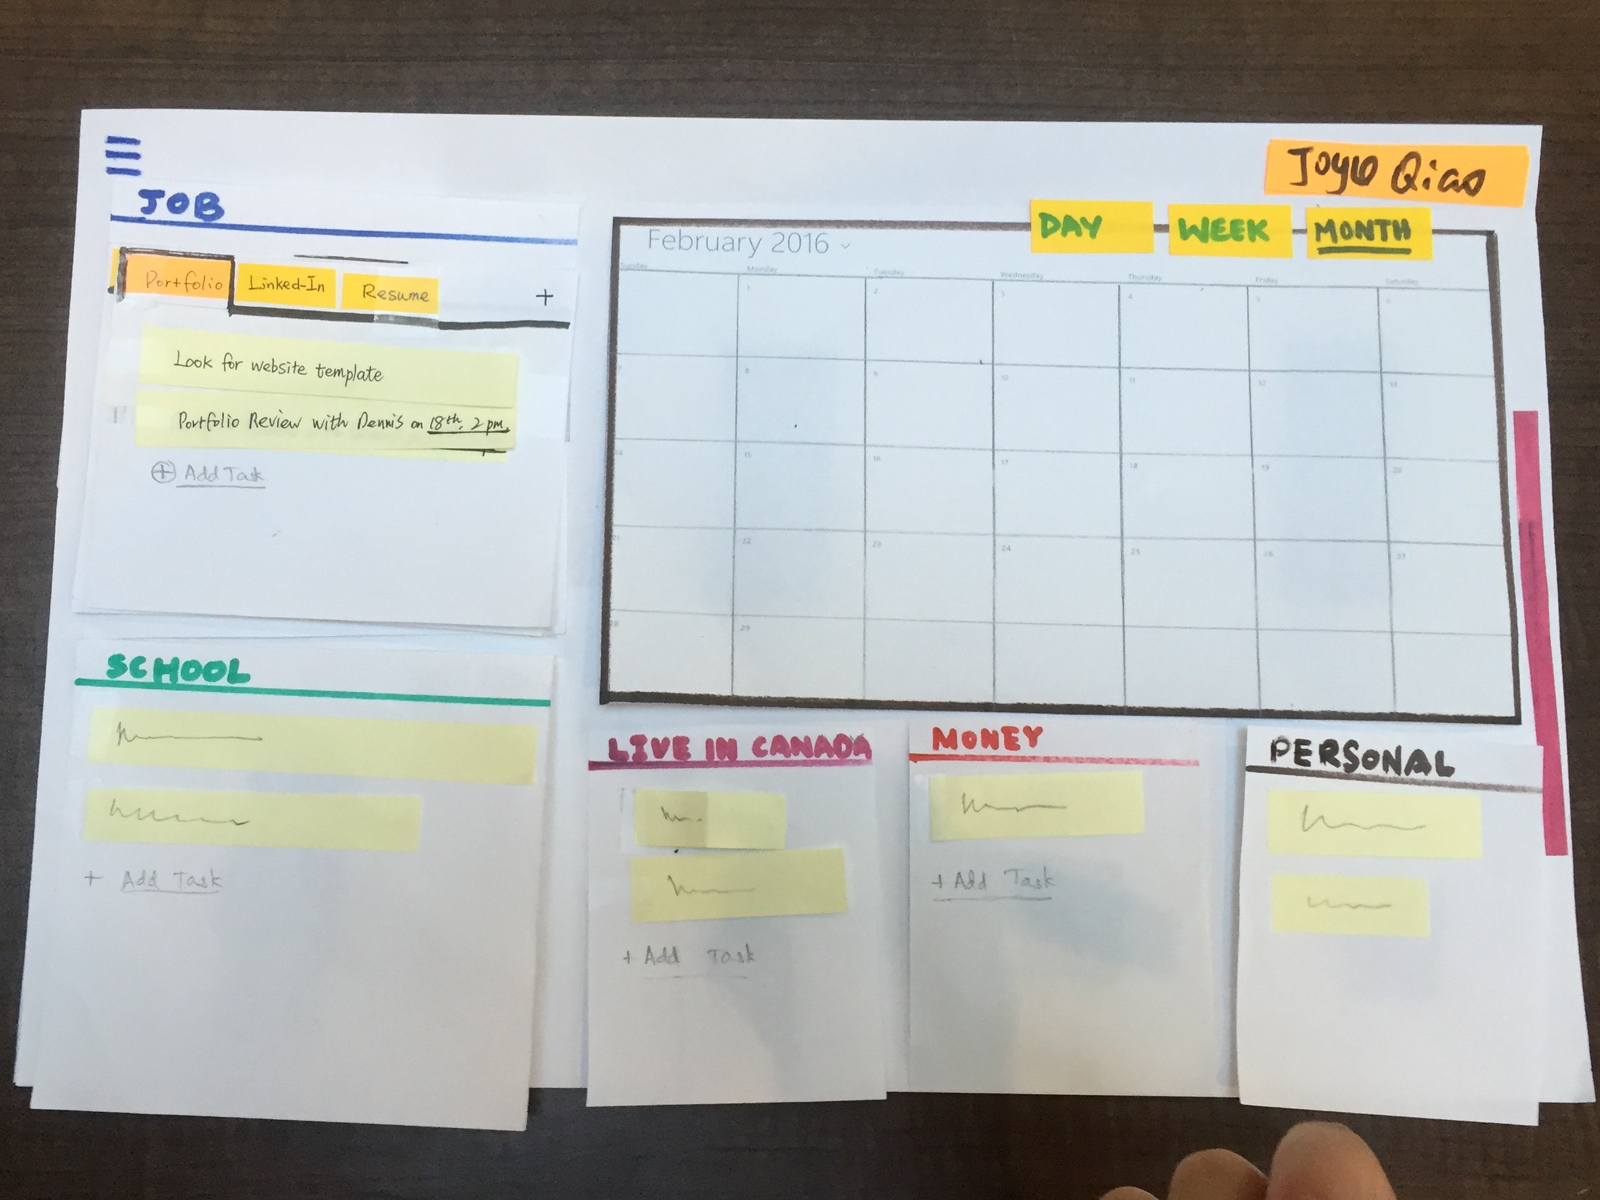 Joyce Qiao
JOB
Portfolio
Linked-In
Resume
+
Look for website template
Portfolio Review with Dennis on 18th, 2 pm
+ Add Task
February 2016
DAY
WEEK
MONTH
Sunday Monday Tuesday Wednesday Thursday Friday Saturday
1 2 3 4 5 6
7 8 9 10 11 12 13
14 15 16 17 18 19 20
21 22 23 24 25 26 27
28 29
SCHOOL
+ Add Task
LIVE IN CANADA
+ Add Task
MONEY
+ Add Task
PERSONAL